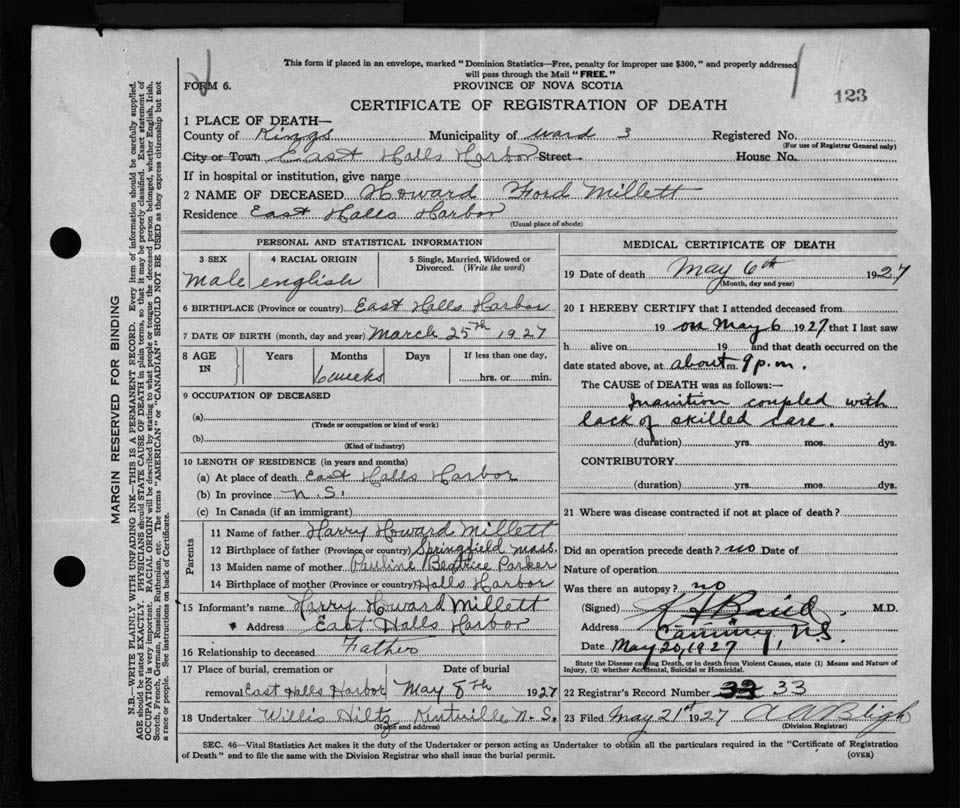 This form if placed in an envelope, marked "Dominion Statistics—Free, penalty for improper use $300," and properly addressed
will pass through the Mail "FREE."
FORM 6.
PROVINCE OF NOVA SCOTIA
123
CERTIFICATE OF REGISTRATION OF DEATH
1 PLACE OF DEATH—
County of Kings Municipality of Ward 3 Registered No.
(For use of Registrar General only)
City or Town East Halls Harbor Street House No.
If in hospital or institution, give name
2 NAME OF DECEASED Howard Ford Millett
Residence East Halls Harbor
(Usual place of abode)
PERSONAL AND STATISTICAL INFORMATION
3 SEX 4 RACIAL ORIGIN 5 Single, Married, Widowed or
Divorced. (Write the word)
male english
6 BIRTHPLACE (Province or country) East Halls Harbor
7 DATE OF BIRTH (month, day and year) March 25th 1927
8 AGE Years Months Days If less than one day,
IN 6 weeks hrs. or min.
9 OCCUPATION OF DECEASED
(a)
(Trade or occupation or kind of work)
(b)
(Kind of industry)
10 LENGTH OF RESIDENCE (in years and months)
(a) At place of death East Halls Harbor
(b) In province N.S.
(c) In Canada (if an immigrant)
Parents
11 Name of father Harry Howard Millett
12 Birthplace of father (Province or country) Springfield Mass.
13 Maiden name of mother Pauline Beatrice Parker
14 Birthplace of mother (Province or country) Halls Harbor
15 Informant's name Harry Howard Millett
Address East Halls Harbor
16 Relationship to deceased Father
17 Place of burial, cremation or Date of burial
removal East Halls Harbor May 8th 1927
18 Undertaker Willis Hiltz Kentville N.S.
(Name and address)
MEDICAL CERTIFICATE OF DEATH
19 Date of death May 6th 1927
(Month, day and year)
20 I HEREBY CERTIFY that I attended deceased from
19 on May 6 1927 that I last saw
h alive on 19 and that death occurred on the
date stated above, at about m. 9 p.m.
The CAUSE OF DEATH was as follows:—
Inanition coupled with
lack of skilled care.
(duration) yrs. mos. dys.
CONTRIBUTORY
(duration) yrs. mos. dys.
21 Where was disease contracted if not at place of death?
Did an operation precede death? no Date of
Nature of operation
Was there an autopsy? no
(Signed) M.D.
Address Canning, N.S.
Date May 20, 1927
State the Disease causing Death, or in death from Violent Causes, state (1) Means and Nature of
Injury, (2) whether Accidental, Suicidal or Homicidal.
22 Registrar's Record Number 33
23 Filed May 21st 1927 A A Bligh
(Division Registrar)
SEC. 46—Vital Statistics Act makes it the duty of the Undertaker or person acting as Undertaker to obtain all the particulars required in the "Certificate of Registration
of Death" and to file the same with the Division Registrar who shall issue the burial permit.
(OVER)
MARGIN RESERVED FOR BINDING
N.B.—WRITE PLAINLY WITH UNFADING INK—THIS IS A PERMANENT RECORD. Every item of information should be carefully supplied.
AGE should be stated EXACTLY. PHYSICIANS should STATE CAUSE OF DEATH in plain terms, so that it may be properly classified. Exact statement of
OCCUPATION is very important. RACIAL ORIGIN will be described by stating to what people or tongue the deceased person belonged, whether English, Irish,
Scotch, French, German, Russian, Ruthenian, etc. The terms "AMERICAN" or "CANADIAN" SHOULD NOT BE USED as they express citizenship but not
a race or people. See instructions on back of Certificate.